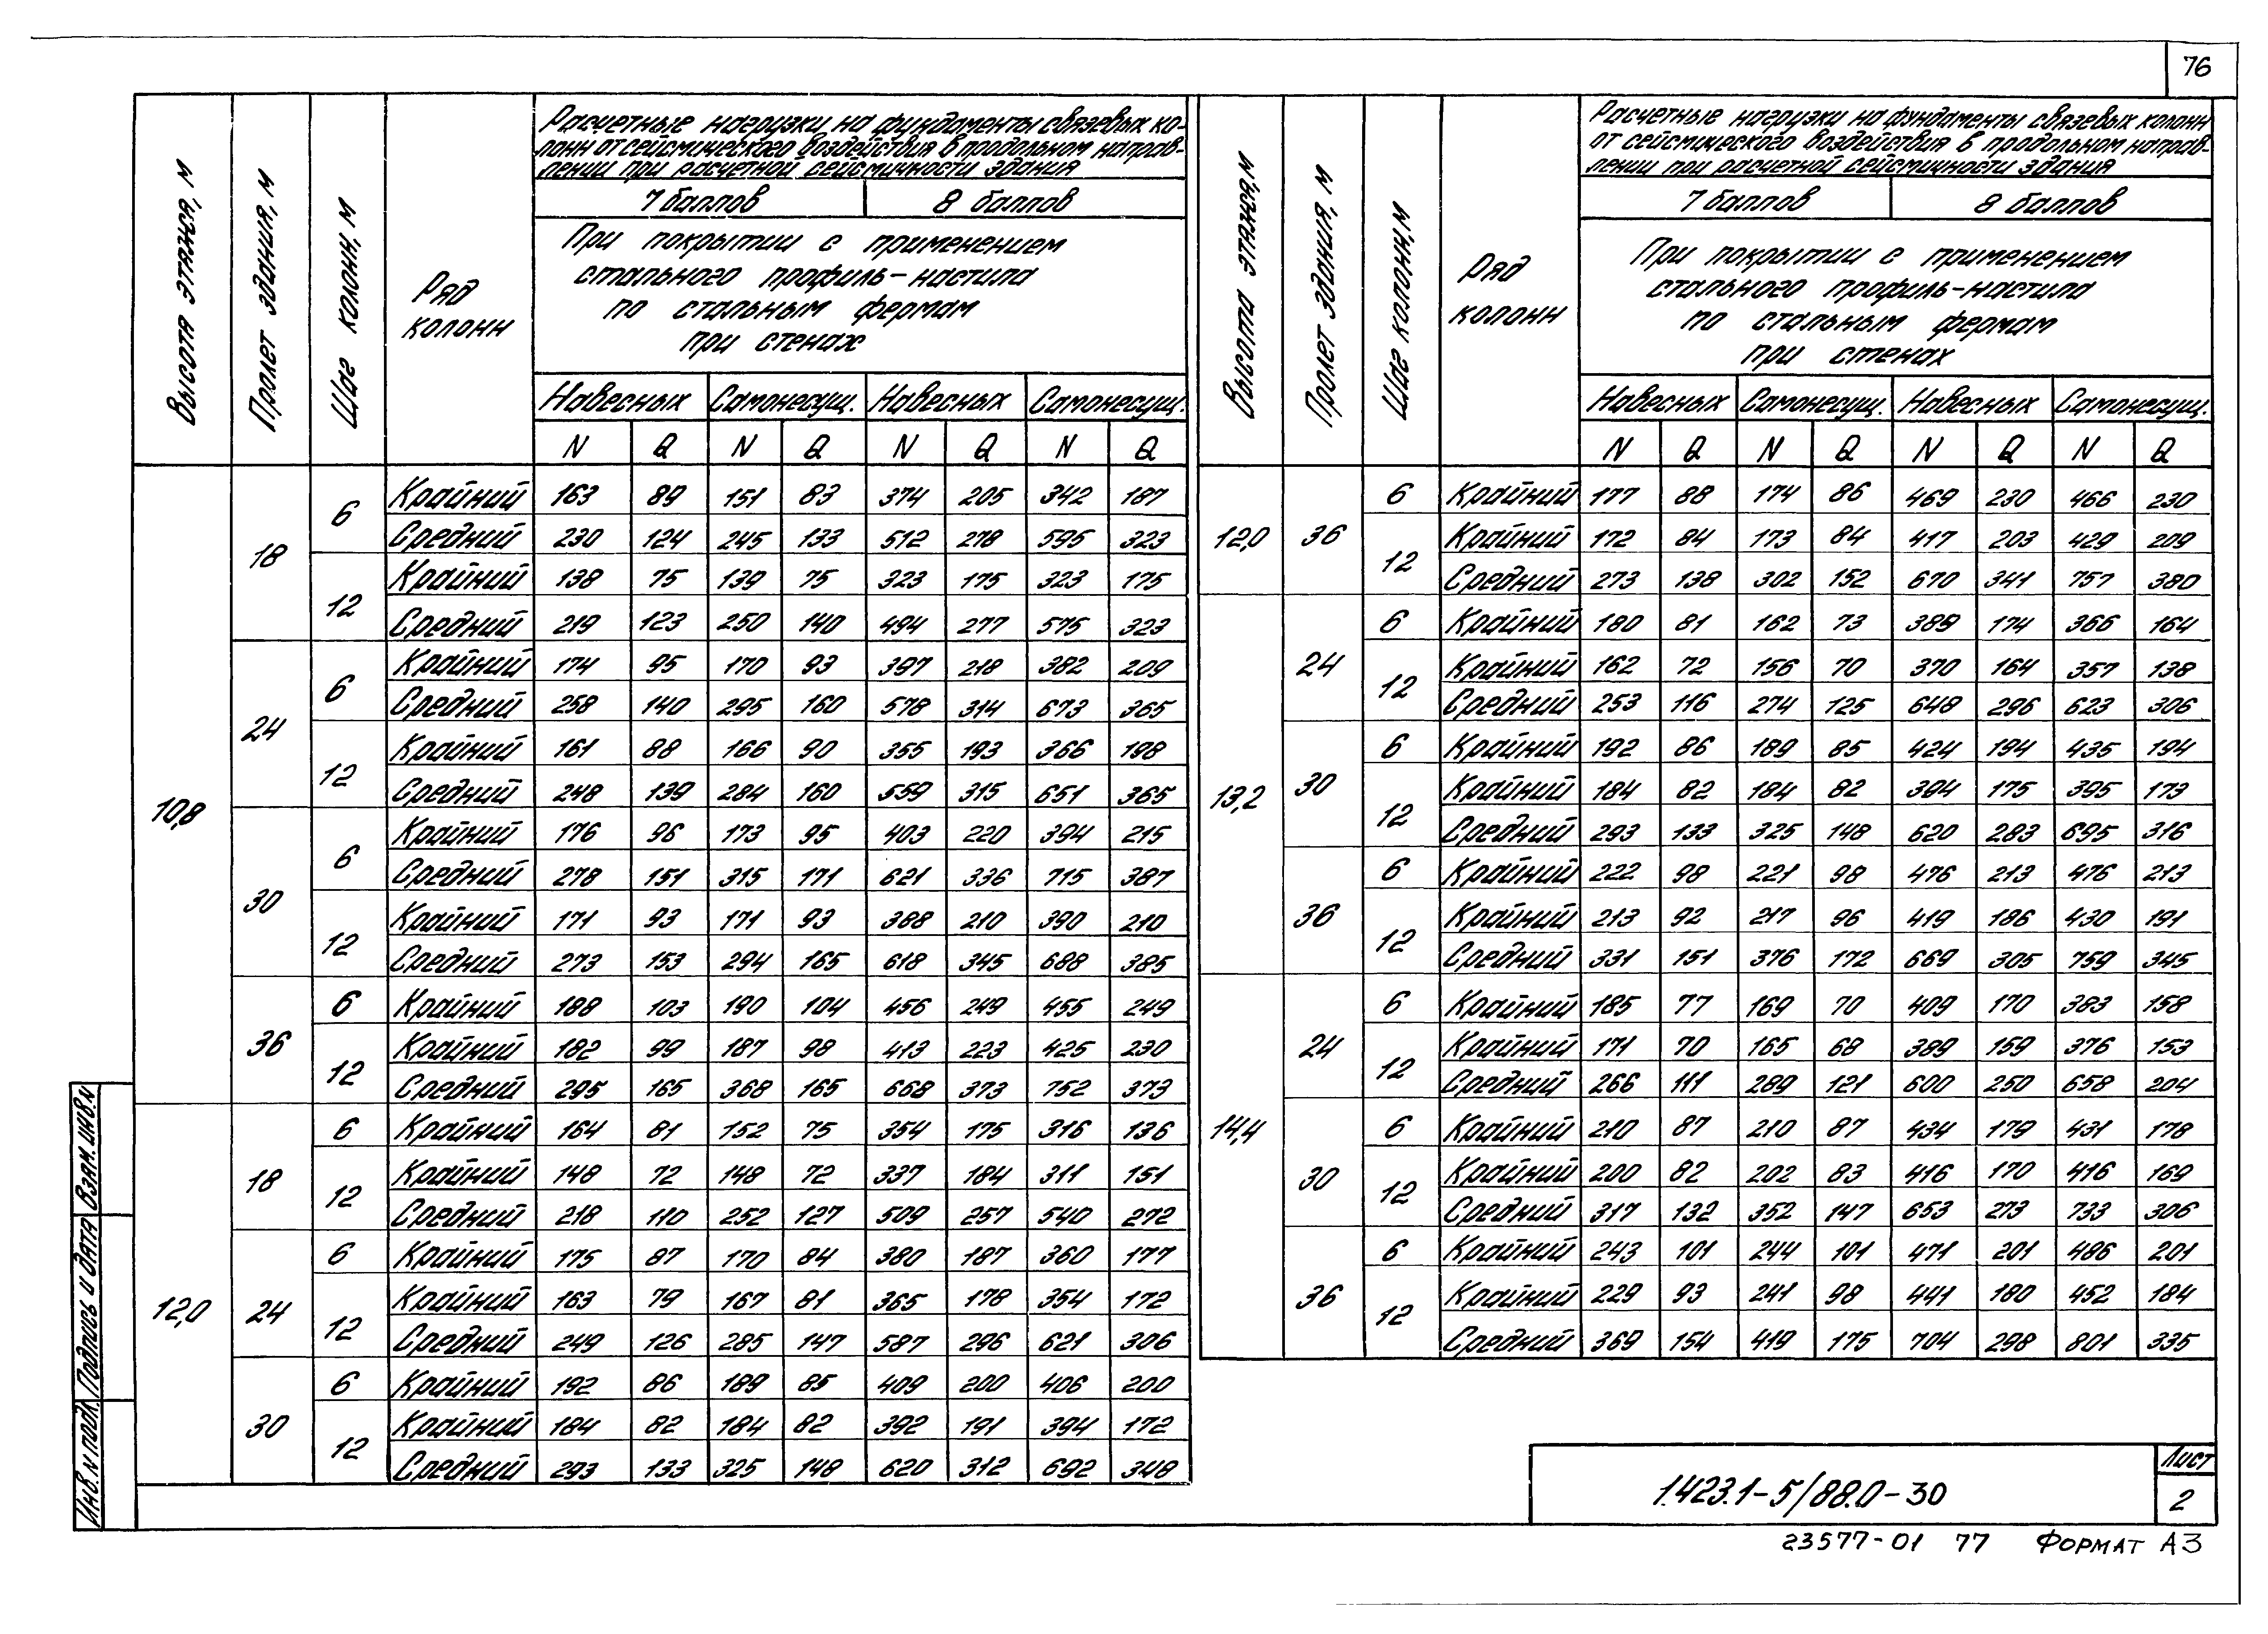 76
Высота этажа, м
Пролет здания, м
Шаг колонн, м
Ряд колонн
Расчетные нагрузки на фундаменты связевых ко-
лонн от сейсмического воздействия в продольном направ-
лении при расчетной сейсмичности здания
7 баллов 8 баллов
При покрытии с применением
стального профиль-настила
по стальным фермам
при стенах
Навесных Самонесущ. Навесных Самонесущ.
N Q N Q N Q N Q
10,8 18 6 Крайний 163 89 151 83 374 205 342 187
Средний 230 124 245 133 512 278 595 323
12 Крайний 138 75 139 75 323 175 323 175
Средний 219 123 250 140 494 277 575 323
24 6 Крайний 174 95 170 93 397 218 382 209
Средний 258 140 295 160 578 314 673 365
12 Крайний 161 88 166 90 355 193 366 198
Средний 248 139 284 160 559 315 651 365
30 6 Крайний 176 96 173 95 403 220 394 215
Средний 278 151 315 171 621 336 715 387
12 Крайний 171 93 171 93 388 210 390 210
Средний 273 153 294 165 618 345 688 385
36 6 Крайний 188 103 190 104 456 249 455 249
12 Крайний 182 99 187 98 413 223 425 230
Средний 295 165 368 165 668 373 752 373
12,0 18 6 Крайний 164 81 152 75 354 175 316 136
12 Крайний 148 72 148 72 337 184 311 151
Средний 218 110 252 127 509 257 540 272
24 6 Крайний 175 87 170 84 380 187 360 177
12 Крайний 163 79 167 81 365 178 354 172
Средний 249 126 285 147 587 296 621 306
30 6 Крайний 192 86 189 85 409 200 406 200
12 Крайний 184 82 184 82 392 191 394 172
Средний 293 133 325 148 620 312 692 348
Высота этажа, м
Пролет здания, м
Шаг колонн, м
Ряд колонн
Расчетные нагрузки на фундаменты связевых колонн
от сейсмического воздействия в продольном направ-
лении при расчетной сейсмичности здания
7 баллов 8 баллов
При покрытии с применением
стального профиль-настила
по стальным фермам
при стенах
Навесных Самонесущ. Навесных Самонесущ.
N Q N Q N Q N Q
12,0 36 6 Крайний 177 88 174 86 469 230 466 230
12 Крайний 172 84 173 84 417 203 429 209
Средний 273 138 302 152 670 341 757 380
13,2 24 6 Крайний 180 81 162 73 389 174 366 164
12 Крайний 162 72 156 70 370 164 357 138
Средний 253 116 274 125 648 296 623 306
30 6 Крайний 192 86 189 85 424 194 435 194
12 Крайний 184 82 184 82 394 175 395 173
Средний 293 133 325 148 620 283 695 316
36 6 Крайний 222 98 221 98 476 213 476 213
12 Крайний 213 92 217 96 419 186 430 191
Средний 331 151 376 172 669 305 759 345
14,4 24 6 Крайний 185 77 169 70 409 170 383 158
12 Крайний 171 70 165 68 389 159 376 153
Средний 266 111 289 121 600 250 658 204
30 6 Крайний 210 87 210 87 434 179 431 178
12 Крайний 200 82 202 83 416 170 416 169
Средний 317 132 352 147 653 273 733 306
36 6 Крайний 243 101 244 101 471 201 486 201
12 Крайний 229 93 241 98 441 180 452 184
Средний 369 154 419 175 704 298 801 335
Инв. N подл. Подпись и дата Взам. инв. N
1.423.1-5/88.0-30
Лист
2
23577-01 77 Формат А3